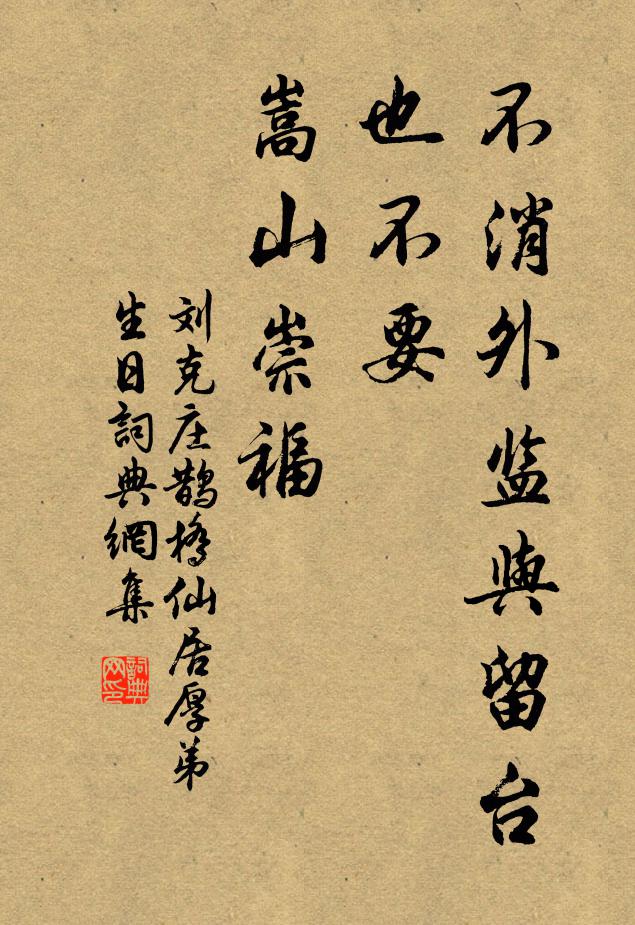 不消外监與留台
也不要
嵩山崇福
刘克庄鹊橋仙居厚弟
生日詞典網集
詞典
网印